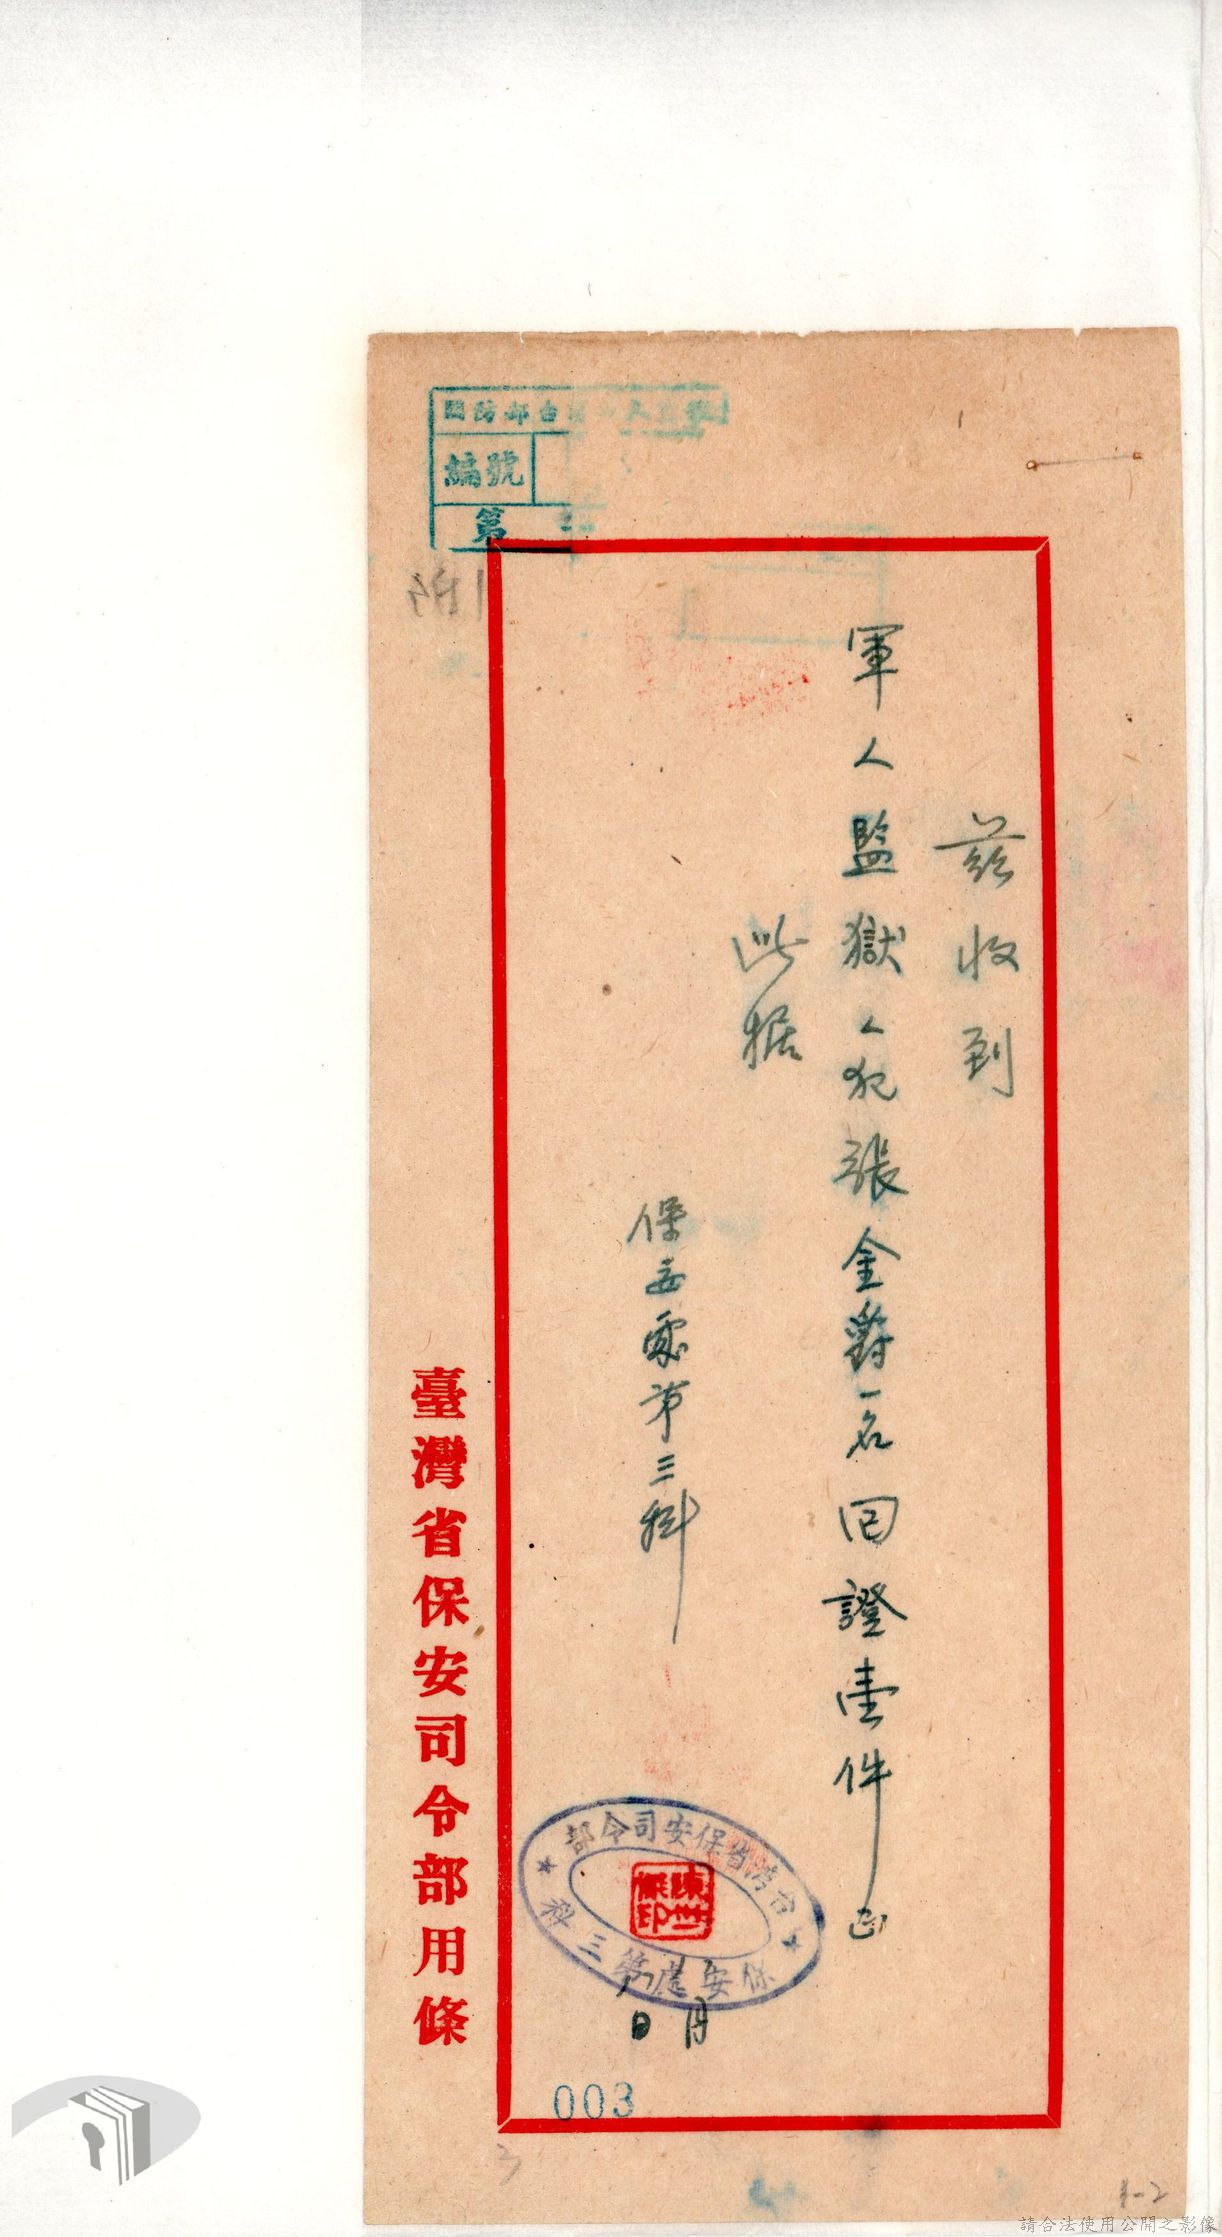 茲收到
軍人監獄人犯張金爵一名回證壹件正
此据
保安處第三科
台灣省保安司令部
保安處第三科
月
日
臺灣省保安司令部用條
國防部台
編號
第
003
3
1-2
請合法使用公開之影像